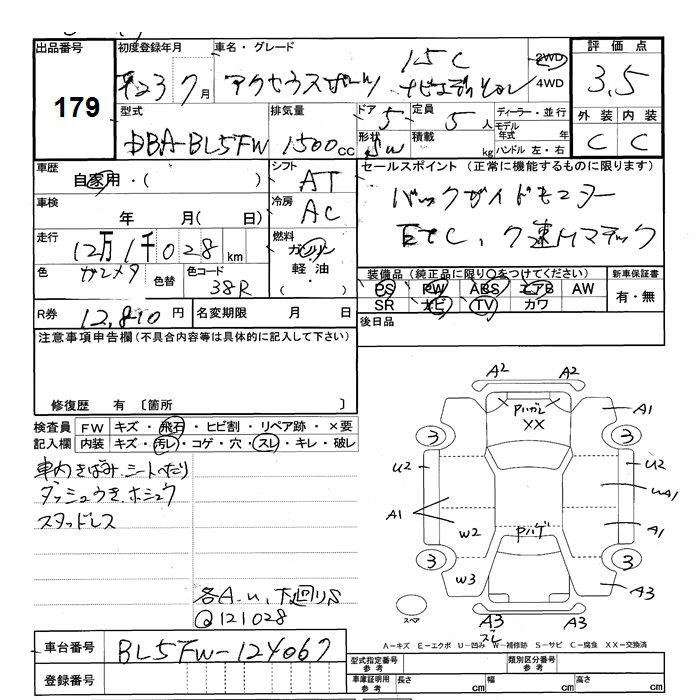 出品番号 初度登録年月 車名・グレード 評価点
179
平23 7月 アクセラスポーツ 15C 2WD 4WD 3.5
型式 排気量 ドア 定員 ディーラー・並行 外装 内装
DBA-BL5FW 1500cc 5 5人 モデル年式 年 C C
形状 5W 積載 kg ハンドル 左・右
車歴 シフト セールスポイント (正常に機能するものに限ります)
自家用・( ) AT バックガイドモニター
車検 冷房 ETC、7速Mマチック
年 月( 日) AC
走行 燃料
12万1千028km ガソリン・軽油・( )
色 色替 色コード 装備品(純正品に限り○をつけてください) 新車保証書
ガンメタ 38R PS PW ABS エアB AW 有・無
SR ナビ TV カワ
R券 12,810円 名変期限 月 日 後日品
注意事項申告欄(不具合内容等は具体的に記入して下さい)
修復歴 有 〔箇所 〕
検査員 FW キズ・飛石・ヒビ割・リペア跡・×要
記入欄 内装 キズ・汚レ・コゲ・穴・スレ・キレ・破レ
車内きばみ.シートへたり
ダッシュウキ.ホシュウ
スタッドレス
各A.u、下廻りS
Q121028
車台番号 BL5FW-124067
登録番号
A2 A2
XX A1
3 3
U2 U2
A1 W2 A1
3 W3 3
A3 A3 A3
スレ
スペア
A-キズ E-エクボ U-凹み W-補修跡 S-サビ C-腐食 XX-交換済
型式指定番号 参考 類別区分番号 参考
車庫証明用 参考 長さ cm 幅 cm 高さ cm